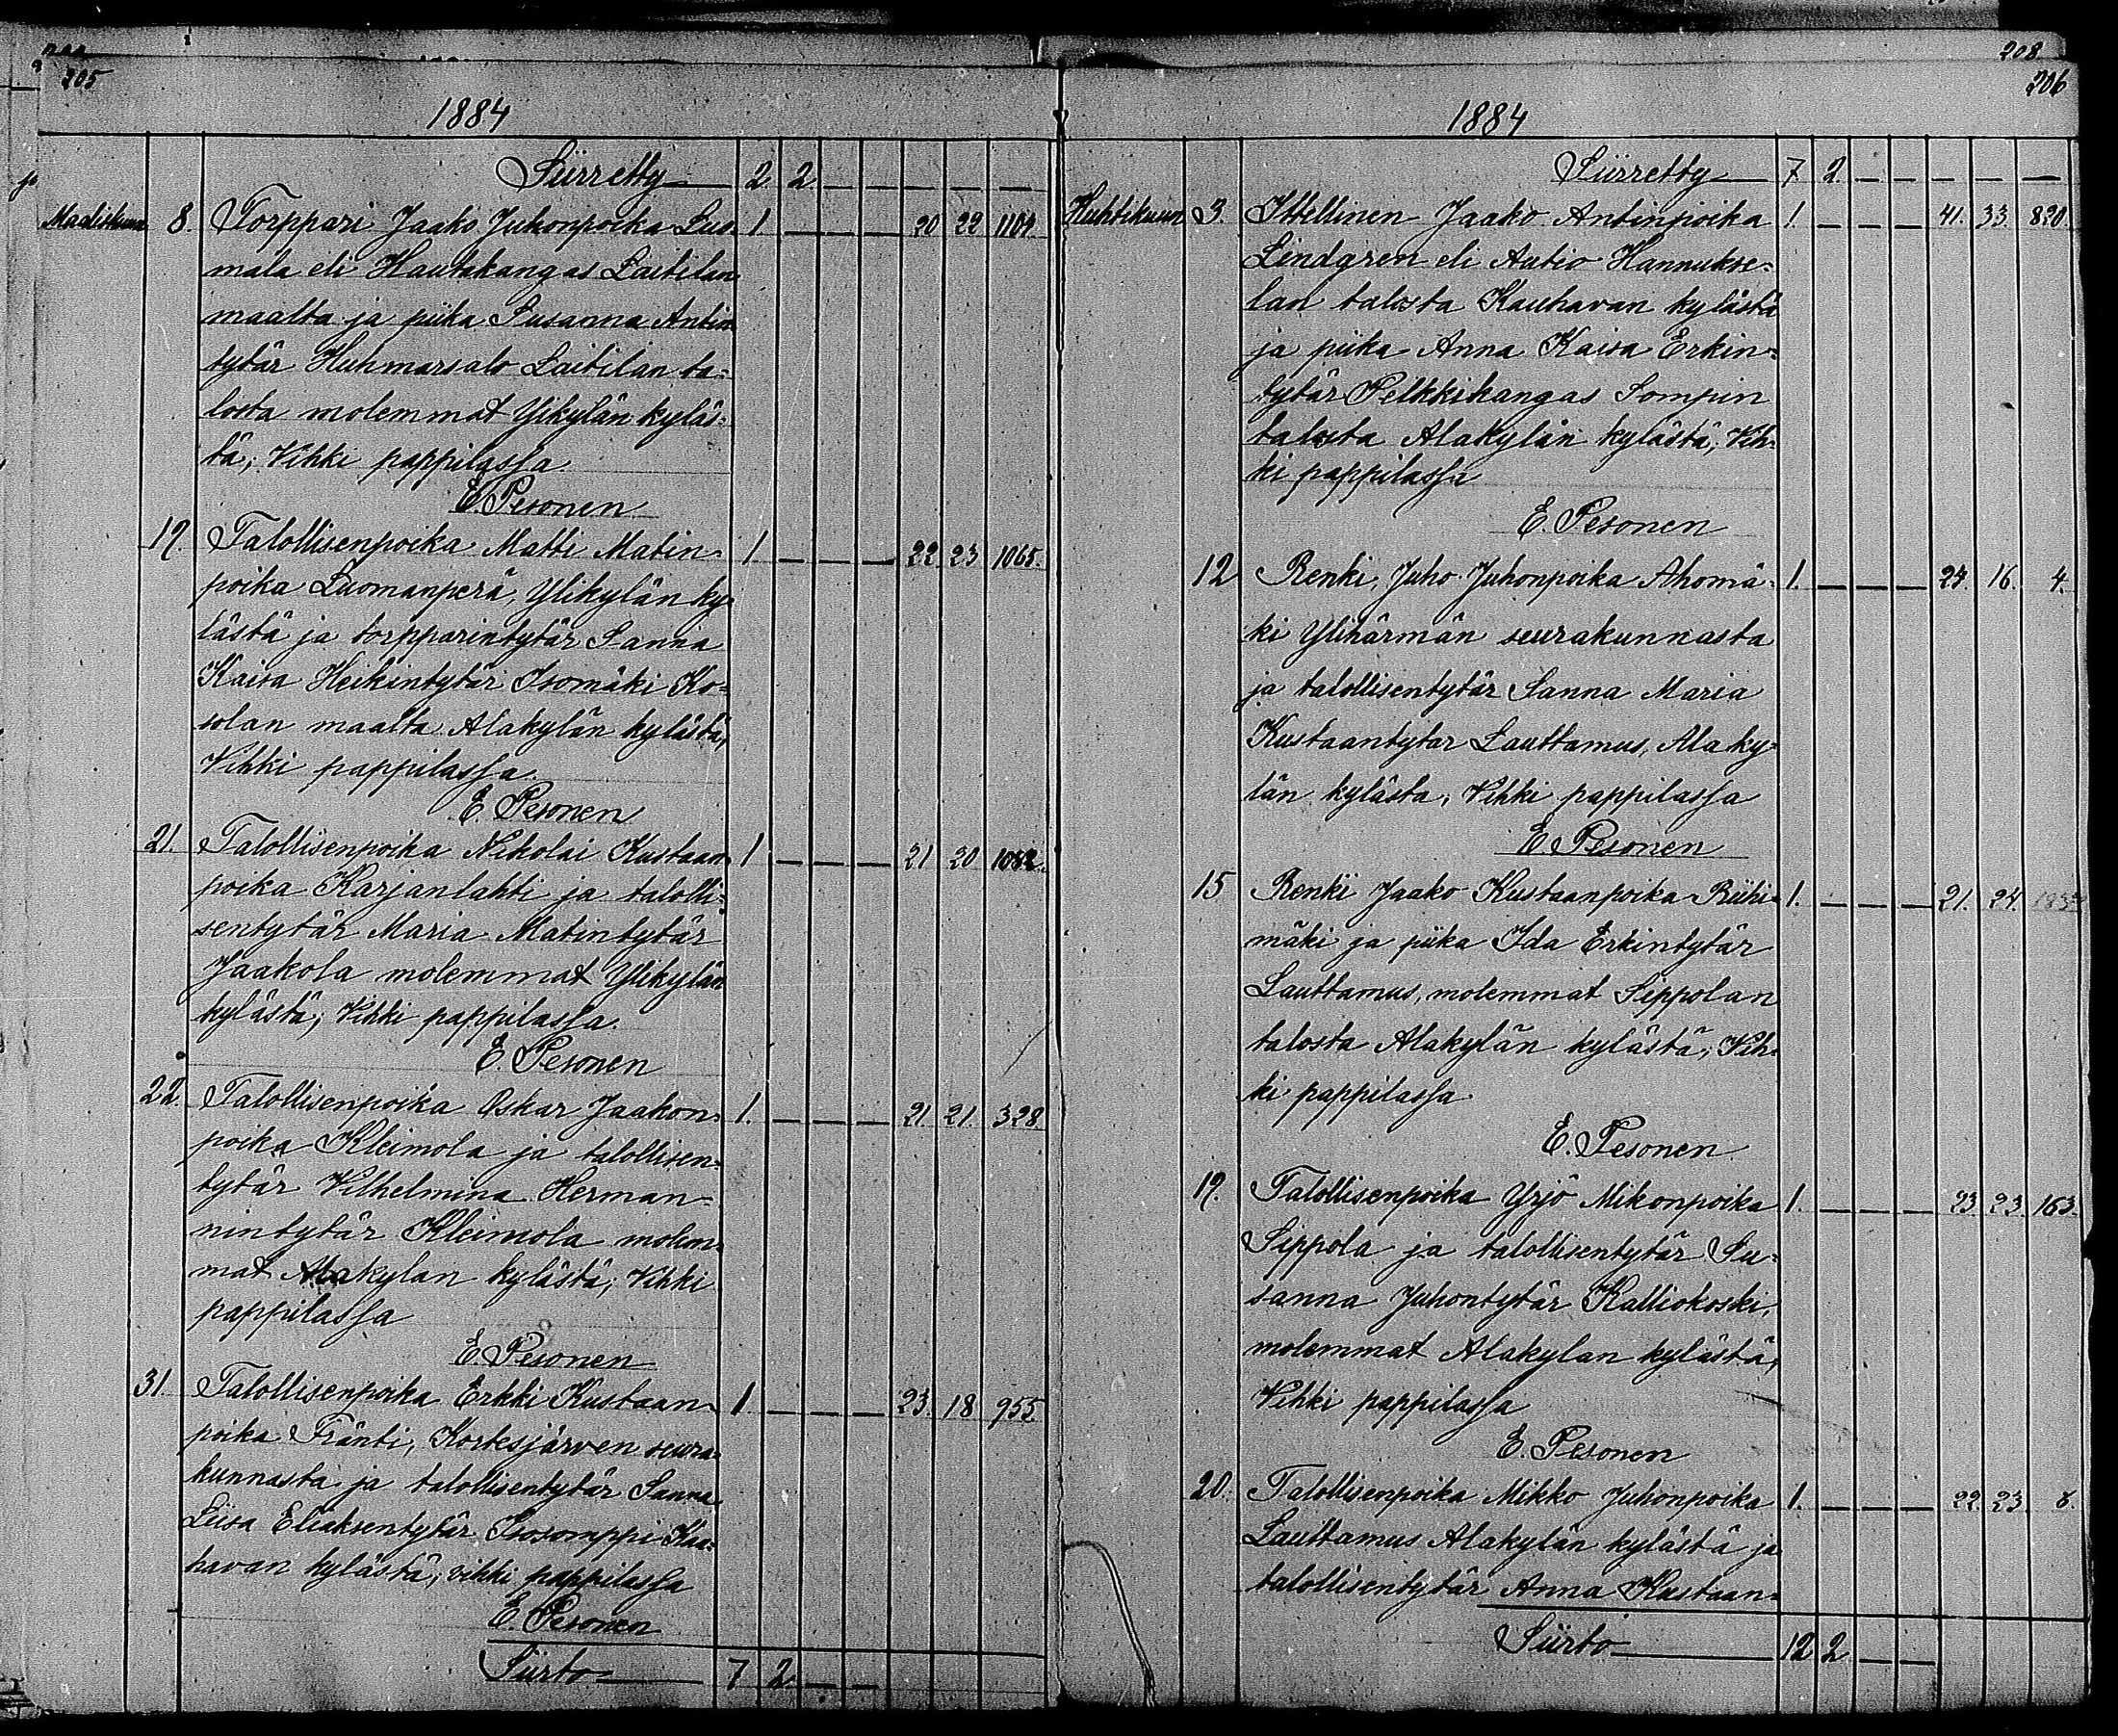 205
1884
Siirretty 2 2
Maaliskuun 8. Torppari Jaako Juhonpoika Luo- 1 20 22 1104.
mala eli Hautakangas Laitilan
maalta ja piika Susanna Antin
tytär Huhmarsalo Laitilan ta-
losta molemmat Ylikylän kyläs-
tä; Vihki pappilassa
E. Pesonen
19. Talollisenpoika Matti Matin- 1 22 23 1065.
poika Luomanperä, Ylikylän ky-
lästä ja torpparintytär Sanna
Kaisa Heikintytär Isomäki Ko-
solan maalta Alakylän kylästä,
Vihki pappilassa.
E. Pesonen
21. Talollisenpoika Nikolai Kustaan 1 21 20 1082.
poika Karjanlahti ja talolli-
sentytär Maria Matintytär
Jaakola molemmat Ylikylän
kylästä; Vihki pappilassa.
E. Pesonen
22. Talollisenpoika Oskar Jaakon- 1. 21. 21. 328.
poika Kleimola ja talollisen-
tytär Vilhelmina Herman-
nintytär Kleimola molem-
mat Alakylan kylästä; Vihki
pappilassa
E. Pesonen
31. Talollisenpoika Erkki Kustaan- 1. 23. 18. 955.
poika Fränti, Kortesjärven seura-
kunnasta ja talollisentytär Sanna
Liisa Eliaksentytär Isosomppi Kau-
havan kylästä; vihki pappilassa
E. Pesonen
Siirto 7 2.
208
206
1884
Siirretty 7 2.
Huhtikuun 3. Itsellinen Jaako Antinpoika 1. 41. 33. 820.
Lindgren eli Autio Hannukse-
lan talosta Kauhavan kylästä
ja piika Anna Kaisa Erkin-
tytär Pelkkikangas Sompin
talosta Alakylän kylästä; Vih-
ki pappilassa
E. Pesonen
12 Renki, Juho Juhonpoika Ahomä- 1. 24. 16. 4.
ki Ylihärmän seurakunnasta
ja talollisentytär Sanna Maria
Kustaantytar Lauttamus, Alaky-
län kylästa; Vihki pappilassa
E. Pesonen
15 Renki Jaako Kustaanpoika Riihi- 1. 21. 24.
mäki ja piika Ida Erkintytär
Lauttamus, molemmat Sippolan
talosta Alakylän kylästä; Vih-
ki pappilassa
E. Pesonen
19. Talollisenpoika Yrjö Mikonpoika 1. 23. 23. 163.
Sippola ja talollisentytär Su-
sanna Juhontytär Kalliokoski,
molemmat Alakylan kylästä,
Vihki pappilassa
E. Pesonen
20. Talollisenpoika Mikko Juhonpoika 1. 22. 23. 8.
Lauttamus Alakylän kylästä ja
talollisentytär Anna Kustaan-
Siirto 12 2